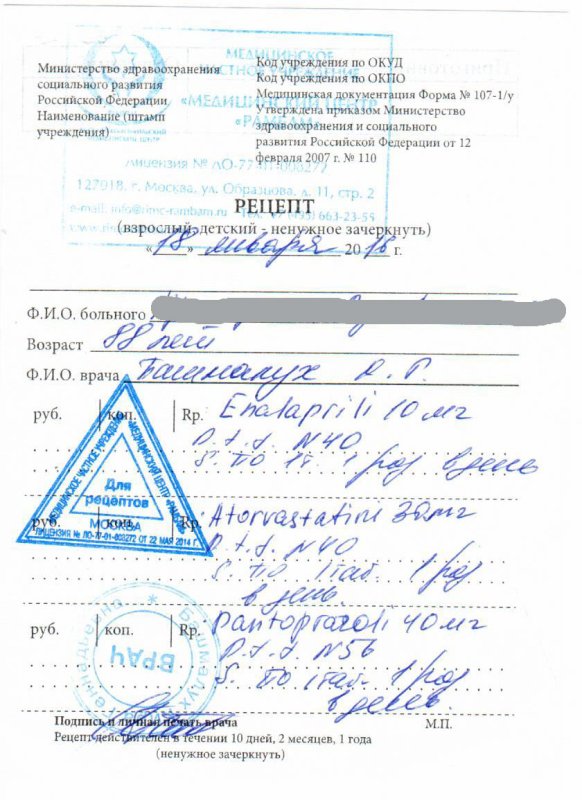 Министерство здравоохранения
социального развития
Российской Федерации
Наименование (штамп
учреждения)
МЕДИЦИНСКОЕ
ЧАСТНОЕ УЧРЕЖДЕНИЕ
«МЕДИЦИНСКИЙ ЦЕНТР
«РАМБАМ»
Лицензия № ЛО-77-01-008272
127018, г. Москва, ул. Образцова, д. 11, стр. 2
e-mail: info@rimc-rambam.ru тел. +7 (495) 663-23-55
Код учреждения по ОКУД
Код учреждения по ОКПО
Медицинская документация Форма № 107-1/у
утверждена приказом Министерство
здравоохранения и социального
развития Российской Федерации от 12
февраля 2007 г. № 110
РЕЦЕПТ
(взрослый, детский - ненужное зачеркнуть)
«18» января 2016 г.
Ф.И.О. больного
Возраст 88 лет
Ф.И.О. врача Башмалух
руб. коп. Rp. Enalaprili 10 мг
D.t.d. N40
S. По 1т. 1 раз в день
руб. коп. Rp. Atorvastatini 30 мг
D.t.d. N40
S. По 1таб. 1 раз
в день.
руб. коп. Rp. Pantoprazoli 40 мг
D.t.d. N56
S. По 1таб. 1 раз
в день.
МЕДИЦИНСКОЕ ЧАСТНОЕ УЧРЕЖДЕНИЕ «МЕДИЦИНСКИЙ ЦЕНТР «РАМБАМ»
Для
рецептов
МОСКВА
ЛИЦЕНЗИЯ № ЛО-77-01-008272 ОТ 22 МАЯ 2014 Г.
ВРАЧ
Подпись и личная печать врача М.П.
Рецепт действителен в течении 10 дней, 2 месяцев, 1 года
(ненужное зачеркнуть)